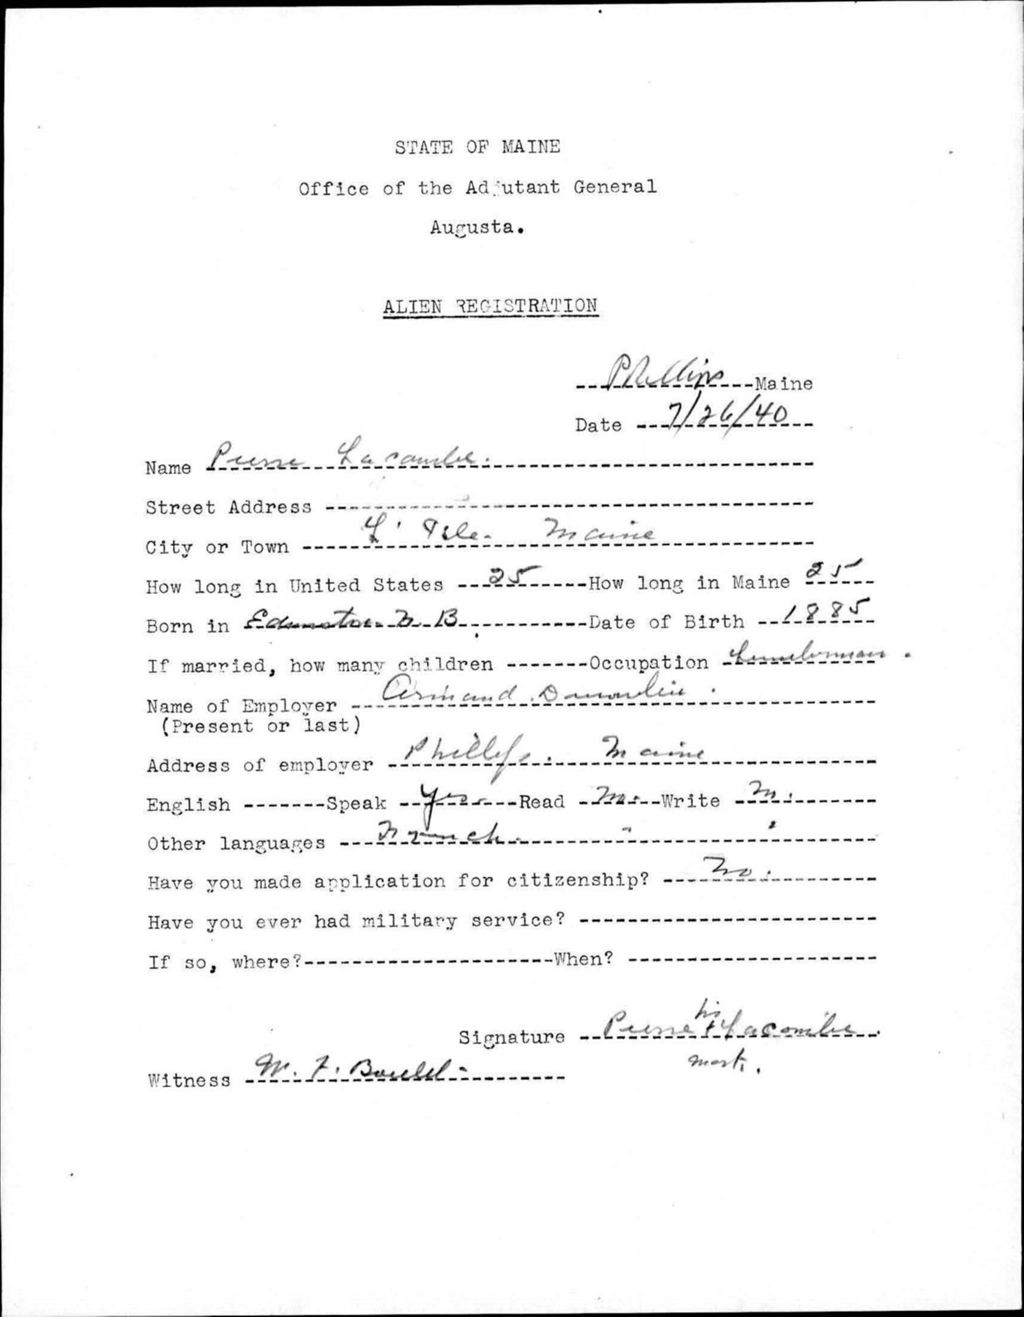 STATE OF MAINE
Office of the Adjutant General
Augusta.
ALIEN REGISTRATION
Phillips Maine
Date 7/26/40
Name Pierre Lacombe.
Street Address
City or Town L' Isle. Maine
How long in United States 25 How long in Maine 25
Born in Edmunston N. B. Date of Birth 1885
If married, how many children Occupation Lumberman.
Name of Employer Armand
(Present or last)
Address of employer Phillips. Maine
English Speak Yes Read No. Write No.
Other languages French. " "
Have you made application for citizenship? No.
Have you ever had military service?
If so, where? When?
his
Signature Pierre x Lacombe.
mark.
Witness W. F.